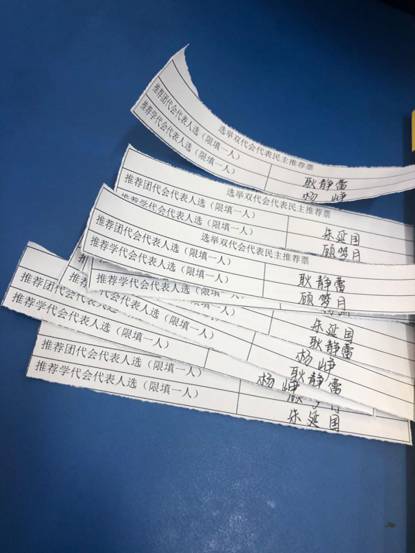 选举双代会代表民主推荐票
推荐团代会代表人选（限填一人） 耿静雷
推荐学代会代表人选（限填一人） 杨峥
选举双代会代表民主推荐票
推荐团代会代表人选（限填一人） 朱延国
推荐学代会代表人选（限填一人） 顾梦月
选举双代会代表民主推荐票
推荐团代会代表人选（限填一人） 耿静雷
推荐学代会代表人选（限填一人） 顾梦月
朱延国
耿静雷
杨峥
推荐团代会代表人选（限填一人） 耿静雷
推荐学代会代表人选（限填一人） 杨峥
推荐团代会代表人选（限填一人）
推荐学代会代表人选（限填一人） 朱延国